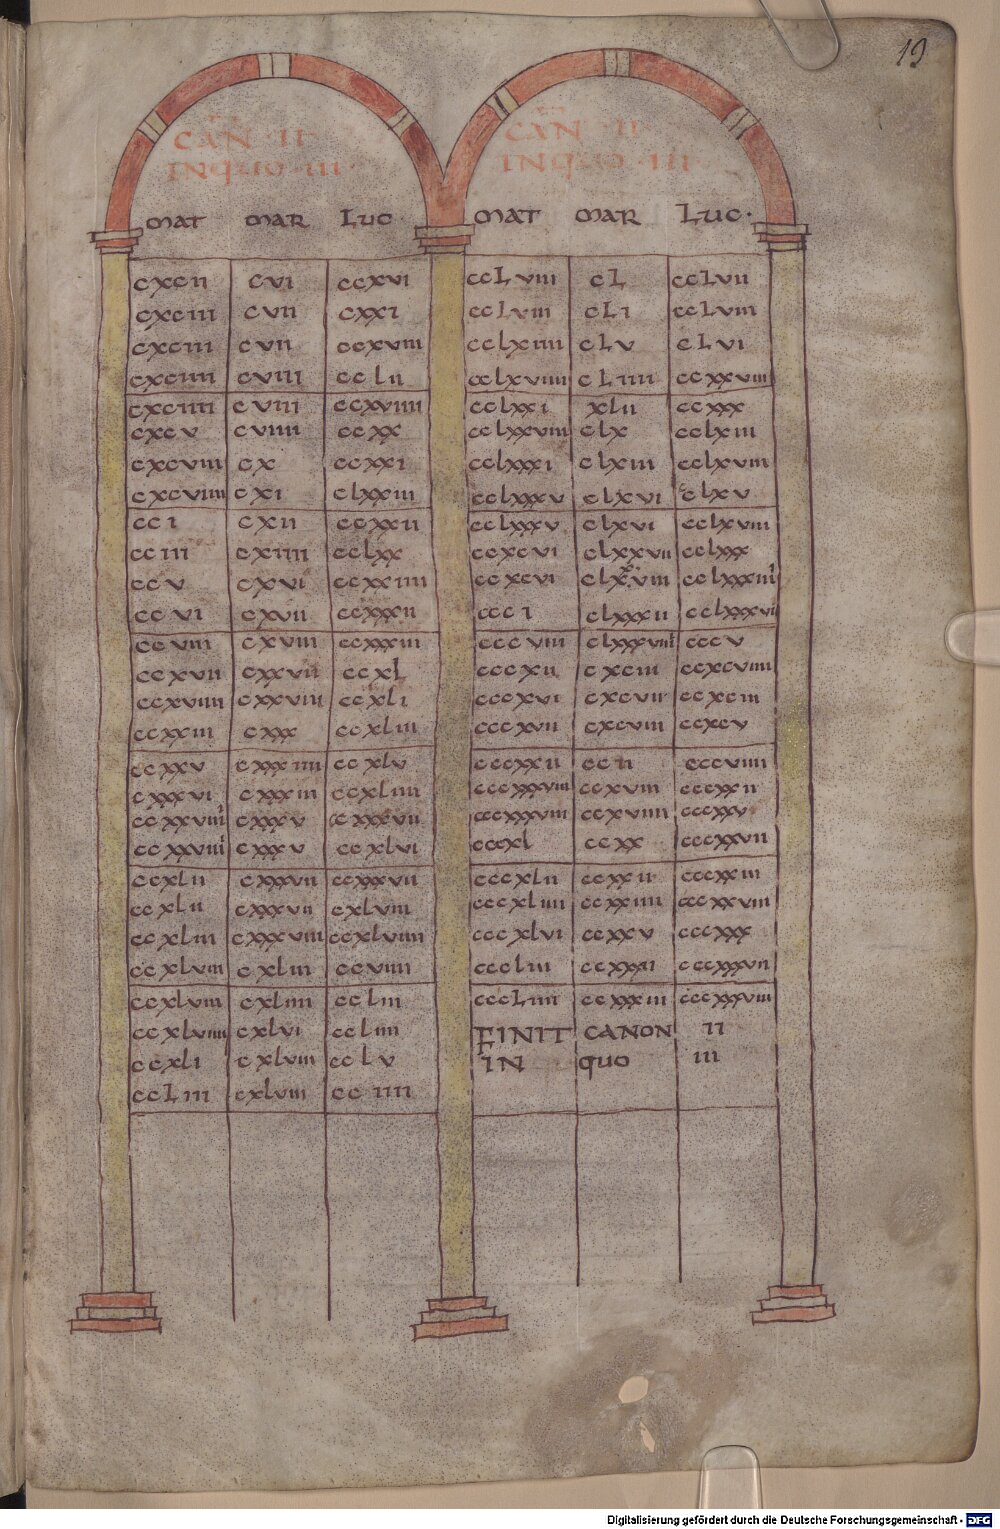 19
CAN · II ·
INQUO · III ·
MAT MAR LUC
cxcii cvi ccxvi
cxciii cvii cxxi
cxciii cvii ccxviii
cxciiii cviii cclii
cxciiii cviii ccxviiii
cxcv cviiii ccxx
cxcviii cx ccxxi
cxcviiii cxi clxxiii
cci cxii ccxxii
cciii cxiiii cclxx
ccv cxvi ccxxiiii
ccvi cxvii ccxxxii
ccviii cxviii ccxxxiii
ccxvii cxxvii ccxl
ccxviiii cxxviii ccxli
ccxxiii cxxx ccxliii
ccxxv cxxxiiii ccxlv
cxxxvi cxxxiii ccxliiii
ccxxviiii cxxxv ccxxxvii
ccxxviiii cxxxv ccxlvi
ccxlii cxxxvii ccxxxvii
ccxlii cxxxvii cxlviii
ccxliii cxxxviii ccxlviiii
ccxlviii cxliii ccviiii
ccxlviii cxliiii ccliii
ccxlviiii cxlvi ccliiii
ccxli cxlviii cclv
ccliii cxlviii cciiii
CAN · II ·
INQUO · III
MAT MAR LUC ·
cclviii cl cclvii
cclviii cli cclviii
cclxiiii clv clvi
cclxviiii cliiii ccxxviii
cclxxi xlii ccxxx
cclxxviii clx cclxiii
cclxxxi clxiii cclxviii
cclxxxv clxvi clxv
cclxxxv clxvi cclxviii
ccxcvi clxxvii cclxxx
ccxcvi clxxviii cclxxxiii
ccci clxxxii cclxxxvi
cccviii clxxxviiii cccv
cccxii cxciii ccxcviiii
cccxvi cxcvii ccxciii
cccxvii cxcviii ccxcv
cccxxii ccii cccviiii
cccxxxviii ccxviii cccxxii
cccxxxviii ccxviiii cccxxv
cccxl ccxx cccxxvii
cccxlii ccxxii cccxxiii
cccxliiii ccxxiiii cccxxviii
cccxlvi ccxxv cccxxx
cccliii ccxxxii cccxxxvii
cccliiii ccxxxiii cccxxxviii
FINIT CANON II
IN quo III
Digitalisierung gefördert durch die Deutsche Forschungsgemeinschaft - DFG